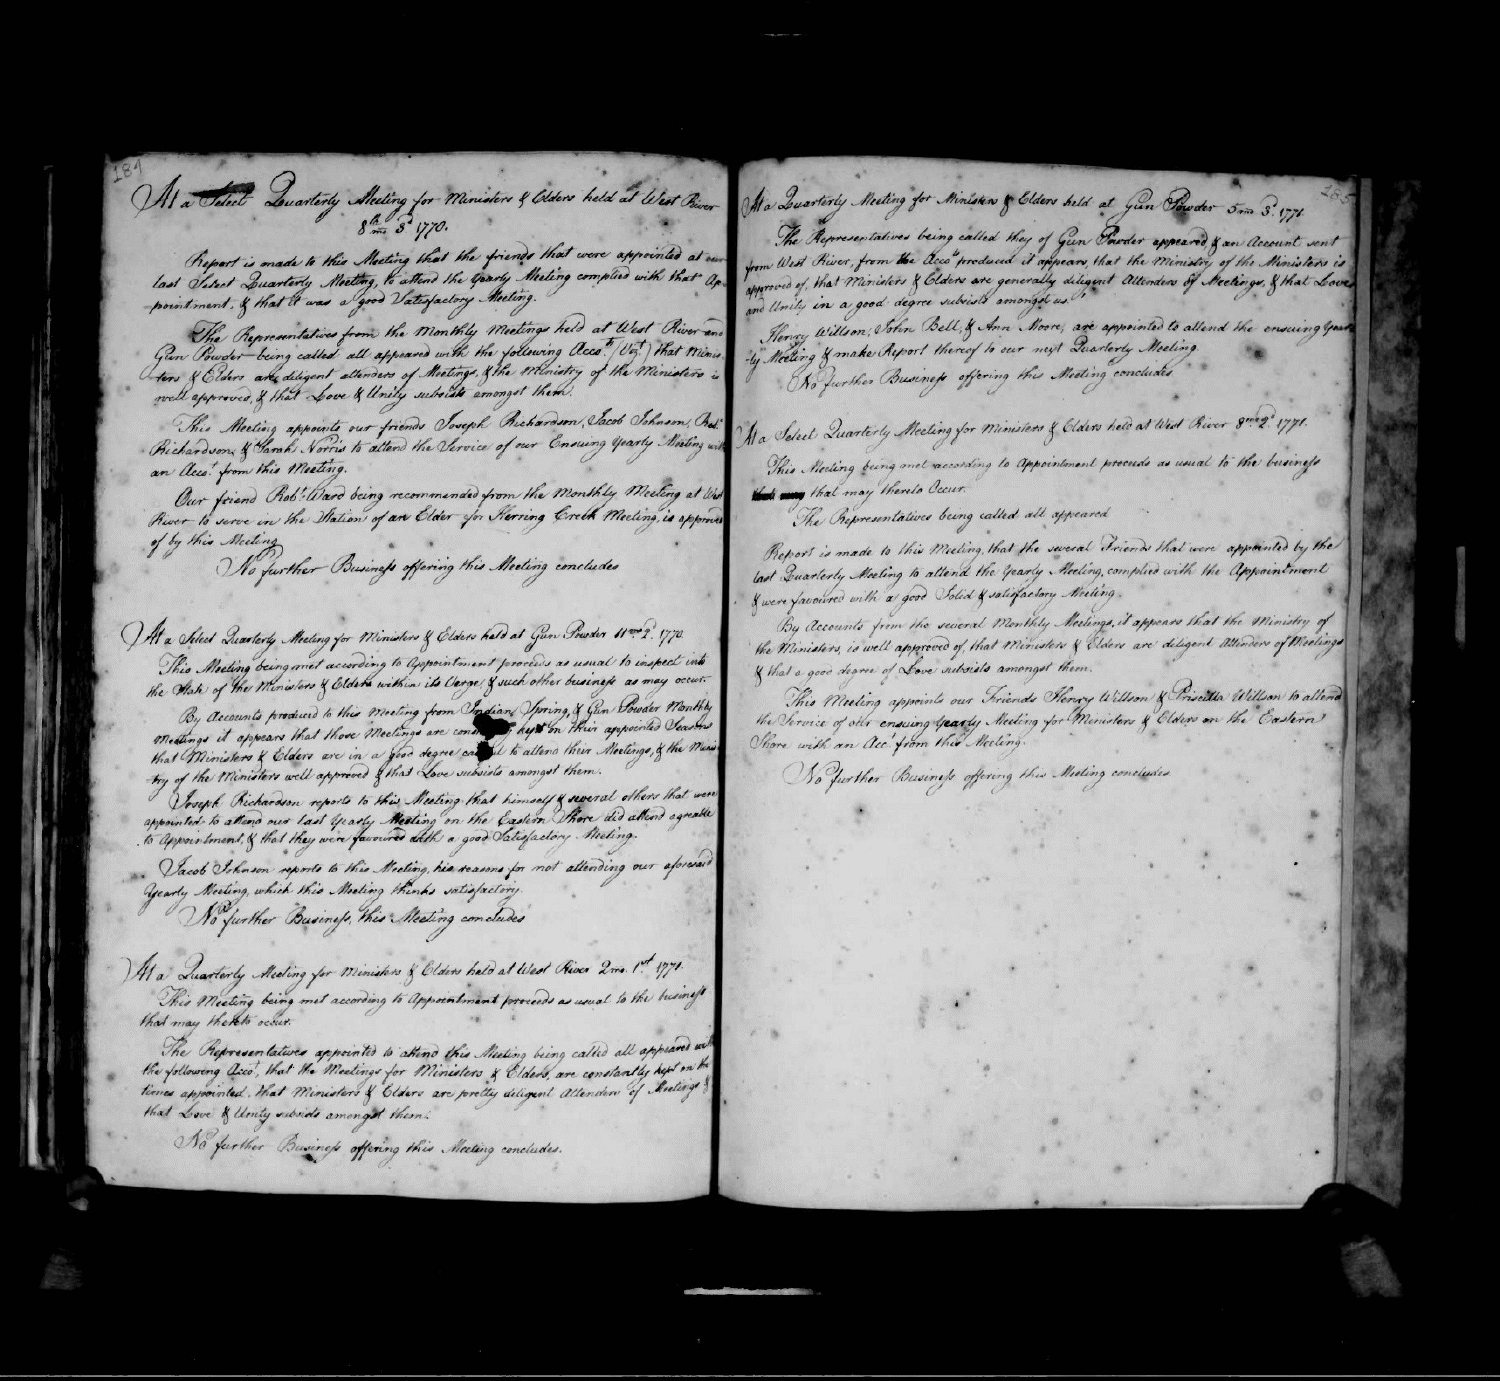 184
At a Select Quarterly Meeting for Ministers & Elders held at West River
8th mo 3d 1770.
Report is made to this Meeting that the friends that were appointed at our
last Select Quarterly Meeting, to attend the Yearly Meeting complied with that Ap-
pointment, & that it was a good Satisfactory Meeting.
The Representatives from the Monthly Meetings held at West River and
Gun Powder being called all appeared with the following Accots. (Vizt) that Minis-
ters & Elders are diligent attenders of Meetings, & the Ministry of the Ministers is
well approved, & that Love & Unity subsists amongst them.
This Meeting appoints our friends Joseph Richardson, Jacob Johnson,
Richardson, & Sarah Norris to attend the Service of our Ensuing Yearly Meeting with
an Accot. from this Meeting.
Our friend Robt. Ward being recommended from the Monthly Meeting at West
River to serve in the Station of an Elder for Herring Creek Meeting, is approved
of by this Meeting
No further Business offering this Meeting concludes
At a Select Quarterly Meeting for Ministers & Elders held at Gun Powder 11mo 2d. 1770
This Meeting being met according to Appointment proceeds as usual to inspect into
the State of the Ministers & Elders within its Verge, & such other business as may occur.
By Accounts produced to this Meeting from Indian Spring, & Gun Powder Monthly
Meetings it appears that those Meetings are kept on their appointed Seasons
that Ministers & Elders are in a good degree careful to attend their Meetings, & the Minis-
try of the Ministers well approved & that Love subsists amongst them.
Joseph Richardson reports to this Meeting that himself & several others that were
appointed to attend our last Yearly Meeting on the Eastern Shore did attend agreable
to Appointment, & that they were favoured with a good Satisfactory Meeting.
Jacob Johnson reports to this Meeting, his reasons for not attending our aforesaid
Yearly Meeting, which this Meeting thinks satisfactory.
No further Business, this Meeting concludes
At a Quarterly Meeting for Ministers & Elders held at West River 2mo. 1st. 1771.
This Meeting being met according to Appointment proceeds as usual to the business
that may thereto occur.
The Representatives appointed to attend this Meeting being called all appeared with
the following Accot, that the Meetings for Ministers & Elders, are constantly kept on the
times appointed, that Ministers & Elders are pretty diligent Attenders of Meetings &
that Love & Unity subsists amongst them.
No further Business offering this Meeting concludes.
185
At a Quarterly Meeting for Ministers & Elders held at Gun Powder 5mo 3d. 1771
The Representatives being called they of Gun Powder appeared, & an Account sent
from West River, from the Accots produced it appears, that the Ministry of the Ministers is
approved of, that Ministers & Elders are generally diligent Attenders of Meetings, & that Love
and Unity in a good degree subsists amongst us
Henry Willson, John Bell, & Ann Moore, are appointed to attend the ensuing Year-
ly Meeting & make Report thereof to our next Quarterly Meeting
No further Business offering this Meeting concludes
At a Select Quarterly Meeting for Ministers & Elders held at West River 8mo 2d 1771.
This Meeting being met according to Appointment proceeds as usual to the business
that may thereto Occur.
The Representatives being called all appeared
Report is made to this Meeting, that the several Friends that were appointed by the
last Quarterly Meeting to attend the Yearly Meeting, complied with the Appointment
& were favoured with a good Solid & satisfactory Meeting.
By Accounts from the several Monthly Meetings, it appears that the Ministry of
the Ministers, is well approved of, that Ministers & Elders are diligent Attenders of Meetings
& that a good degree of Love subsists amongst them.
This Meeting appoints our Friends Henry Willson & Priscilla Willson to attend
the Service of our ensuing Yearly Meeting for Ministers & Elders on the Eastern
Shore with an Acct from this Meeting.
No further Business offering this Meeting concludes